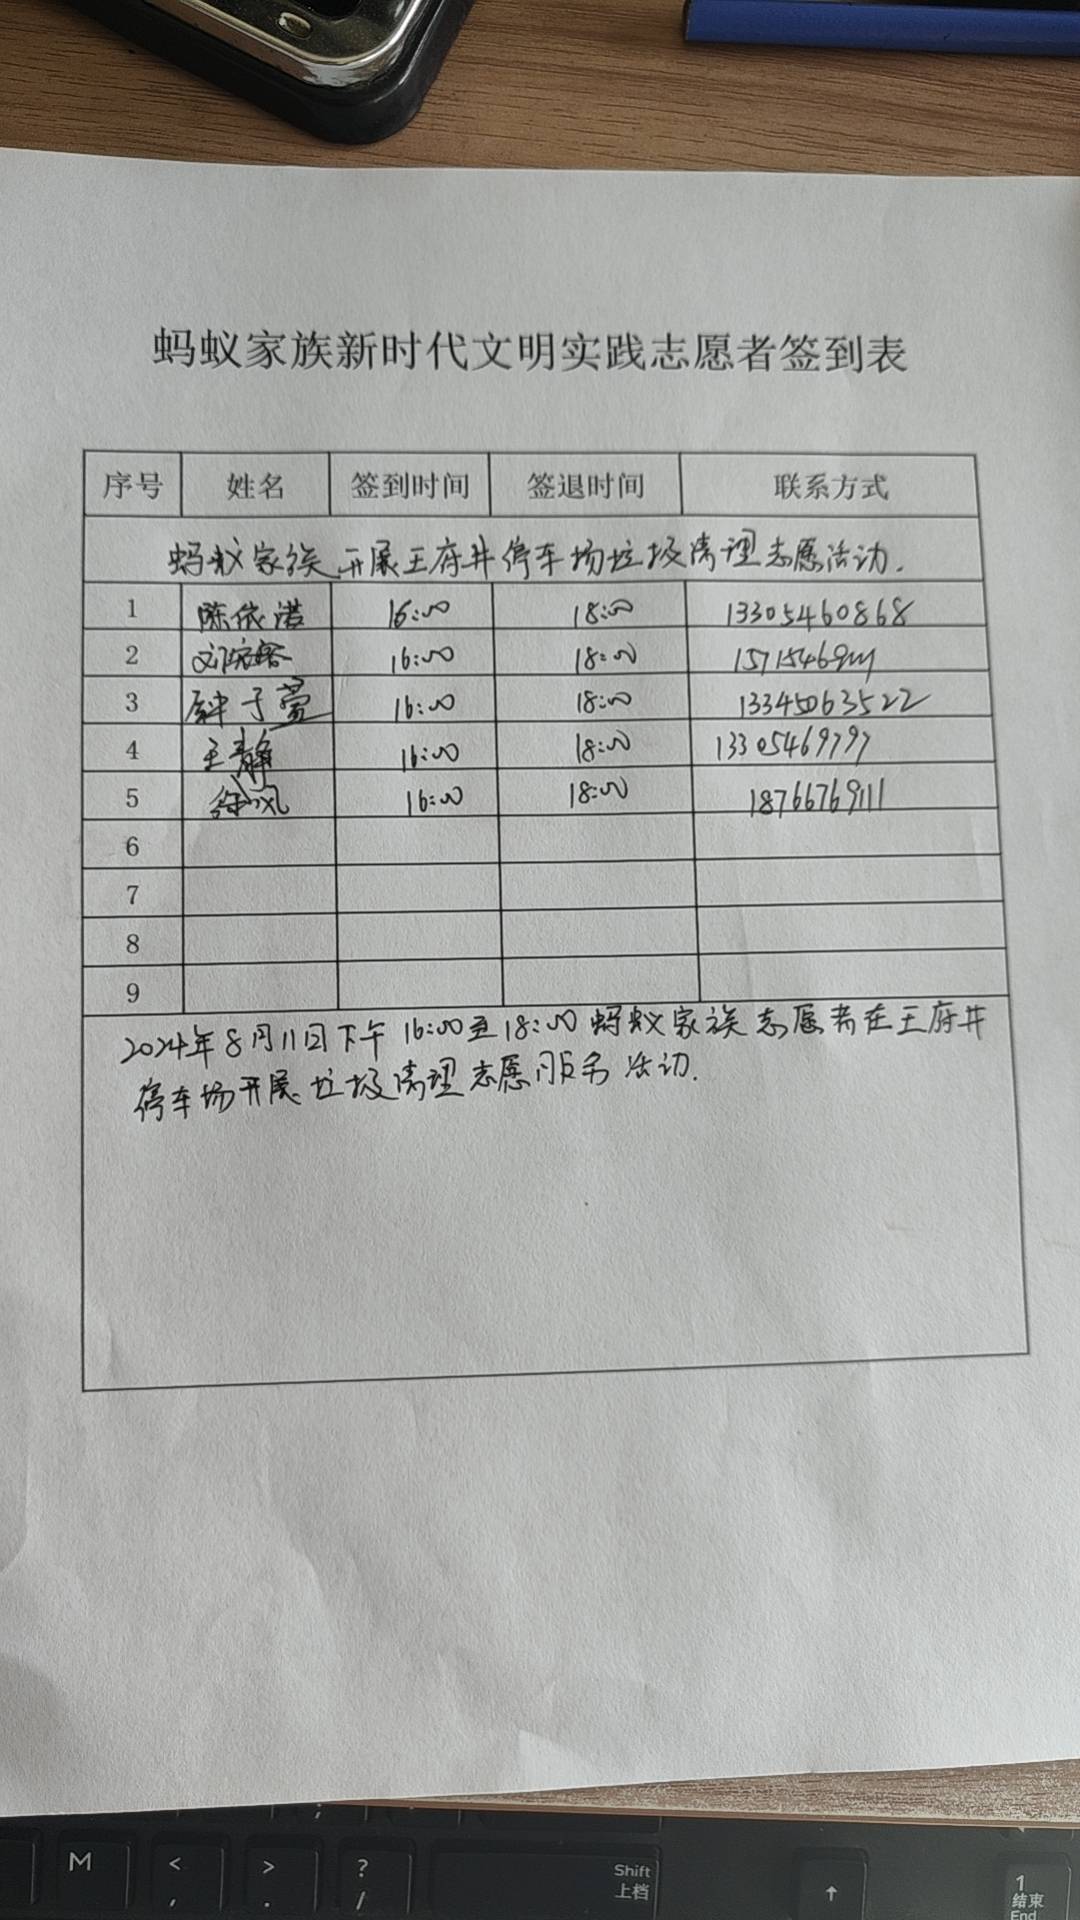 蚂蚁家族新时代文明实践志愿者签到表
序号 姓名 签到时间 签退时间 联系方式
蚂蚁家族开展王府井停车场垃圾清理志愿活动.
1 陈依诺 16:00 18:00 13305460868
2 16:00 18:00
3 子萱 16:00 18:00 13345063522
4 王静 16:00 18:00 13305469797
5 徐凤 16:00 18:00 18766769111
6
7
8
9
2024年8月11日下午16:00至18:00蚂蚁家族志愿者在王府井
停车场开展垃圾清理志愿服务活动.
M < , > . ? / Shift 上档 ↑ 1 结束 End